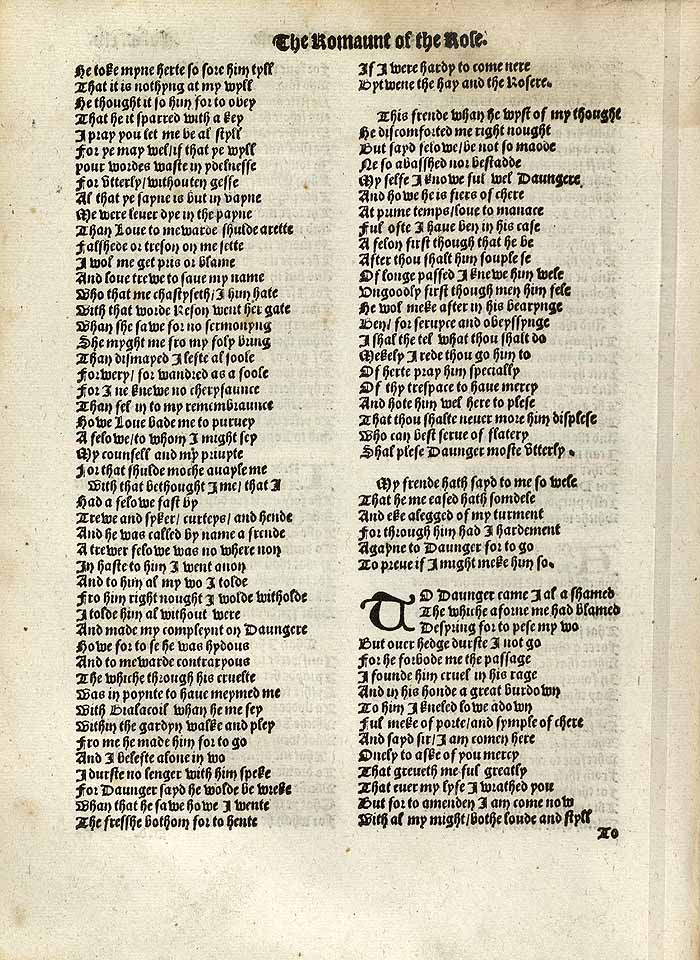 The Romaunt of the Rose.
He toke myne herte so sore him tyll
That it is nothyng at my wyll
He thought it so him for to obey
That he it sparred with a key
I pray you let me be al styll
For ye may wel/if that ye wyll
your wordes waste in ydelnesse
For vtterly/withouten gesse
Al that ye sayne is but in vayne
Me were leuer dye in the payne
Than Loue to mewarde shulde arette
Falshede or treson on me sette
I wol me get pris or blame
And loue trewe to saue my name
Who that me chastyseth/I him hate
With that worde Reson went her gate
Whan she sawe for no sermonyng
She myght me fro my foly bring
Than dismayed I lefte al soole
Forwery/forwandred as a foole
For I ne knewe no cheryfaunce
Than fel in to my remembraunce
Howe Loue bade me to puruey
A felowe/to whom I might sey
My counsell and my priuyte
For that shulde moche auayle me
With that bethought I me/that I
Had a felowe fast by
Trewe and syker/curteys/and hende
And he was called by name a frende
A trewer felowe was no where non
In haste to him I went anon
And to him al my wo I tolde
Fro him right nought I wolde witholde
I tolde him al without were
And made my compleynt on Daungere
Howe for to se he was hydous
And to mewarde contraryous
The whiche through his cruelte
Was in poynte to haue meymed me
With Bialacoil whan he me sey
Within the gardyn walke and pley
Fro me he made him for to go
And I belefte alone in wo
I durste no lenger with him speke
For Daunger sayd he wolde be wreke
Whan that he sawe howe I wente
The fresshe bothom for to hente
If I were hardy to come nere
Bytwene the hay and the Rosere.
This frende whan he wyst of my thought
He discomforted me right nought
But sayd felowe/be not so madde
Ne so abasshed nor bestadde
My selfe I knowe ful wel Daungere
And howe he is fiers of chere
At prime temps/loue to manace
Ful ofte I haue ben in his case
A felon first though that he be
After thou shalt him souple se
Of longe passed I knewe him wele
Vngoodly first though men him fele
He wol meke after in his bearynge
Ben/for seruyce and obeyssynge
I shal the tel what thou shalt do
Mekely I rede thou go him to
Of herte pray him specially
Of thy trespace to haue mercy
And hote him wel here to plese
That thou shalte neuer more him displese
Who can best serue of flatery
Shal plese Daunger moste vtterly.
My frende hath sayd to me so wele
That he me eased hath somdele
And eke alegged of my turment
For through him had I hardement
Agayne to Daunger for to go
To preue if I might meke him so.
TO Daunger came I al a shamed
The whiche aforne me had blamed
Desyring for to pese my wo
But ouer hedge durste I not go
For he forbode me the passage
I founde him cruel in his rage
And in his honde a great burdown
To him I kneled lowe adown
Ful meke of porte/and symple of chere
And sayd sir/I am comen here
Onely to aske of you mercy
That greueth me ful greatly
That euer my lyfe I wrathed you
But for to amenden I am come now
With al my might/bothe loude and styll
To